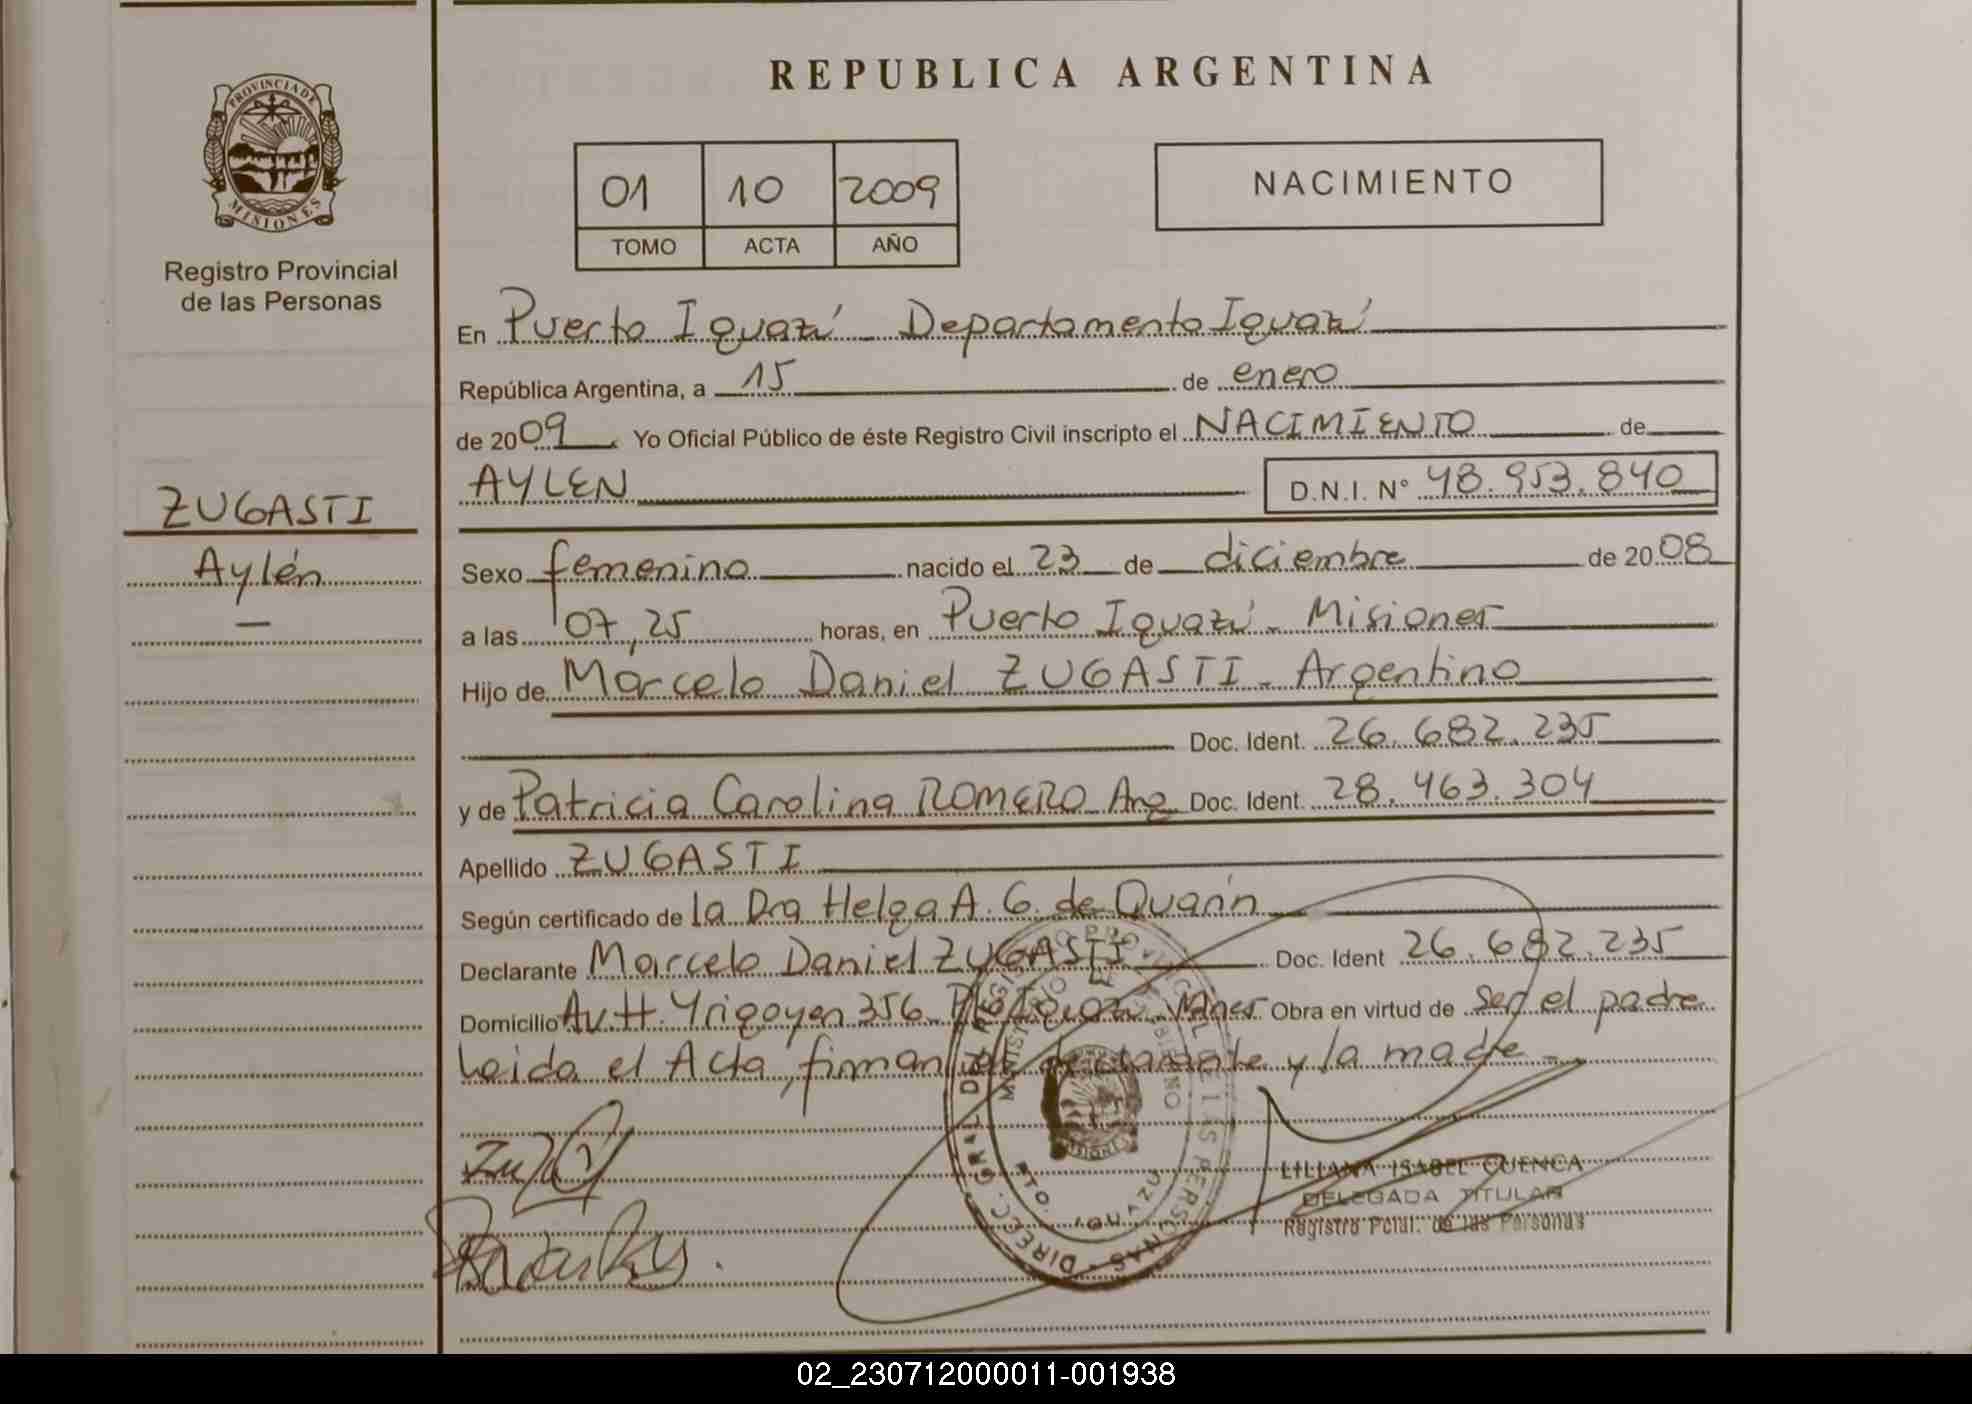 REPUBLICA ARGENTINA
PROVINCIA DE
MISIONES
Registro Provincial
de las Personas
01 10 2009
TOMO ACTA AÑO
NACIMIENTO
En Puerto Iguazú - Departamento Iguazú
República Argentina, a 15 de enero
de 2009 Yo Oficial Público de éste Registro Civil inscripto el NACIMIENTO de
AYLEN D.N.I. N° 48.953.840
ZUGASTI
Aylén
Sexo femenino nacido el 23 de diciembre de 2008
a las 07,25 horas, en Puerto Iguazú - Misiones
Hijo de Marcelo Daniel ZUGASTI - Argentino
Doc. Ident. 26.682.235
y de Patricia Carolina ROMERO Arg Doc. Ident. 28.463.304
Apellido ZUGASTI
Según certificado de la Dra Helga A. G. de Quarín
Declarante Marcelo Daniel ZUGASTI Doc. Ident 26.682.235
Domicilio Av. H. Yrigoyen 356 Obra en virtud de ser el padre
Leida el Acta, firman el declarante y la madre -
LILIANA ISABEL CUENCA
DELEGADA TITULAR
Registro Pcial. de las Personas
02_230712000011-001938